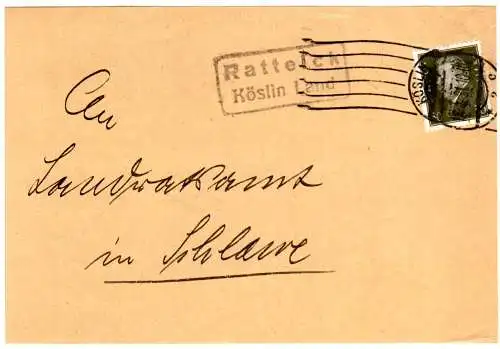 Ratteick
Köslin Land
KÖSLIN
An
Landratsamt
in Schlawe